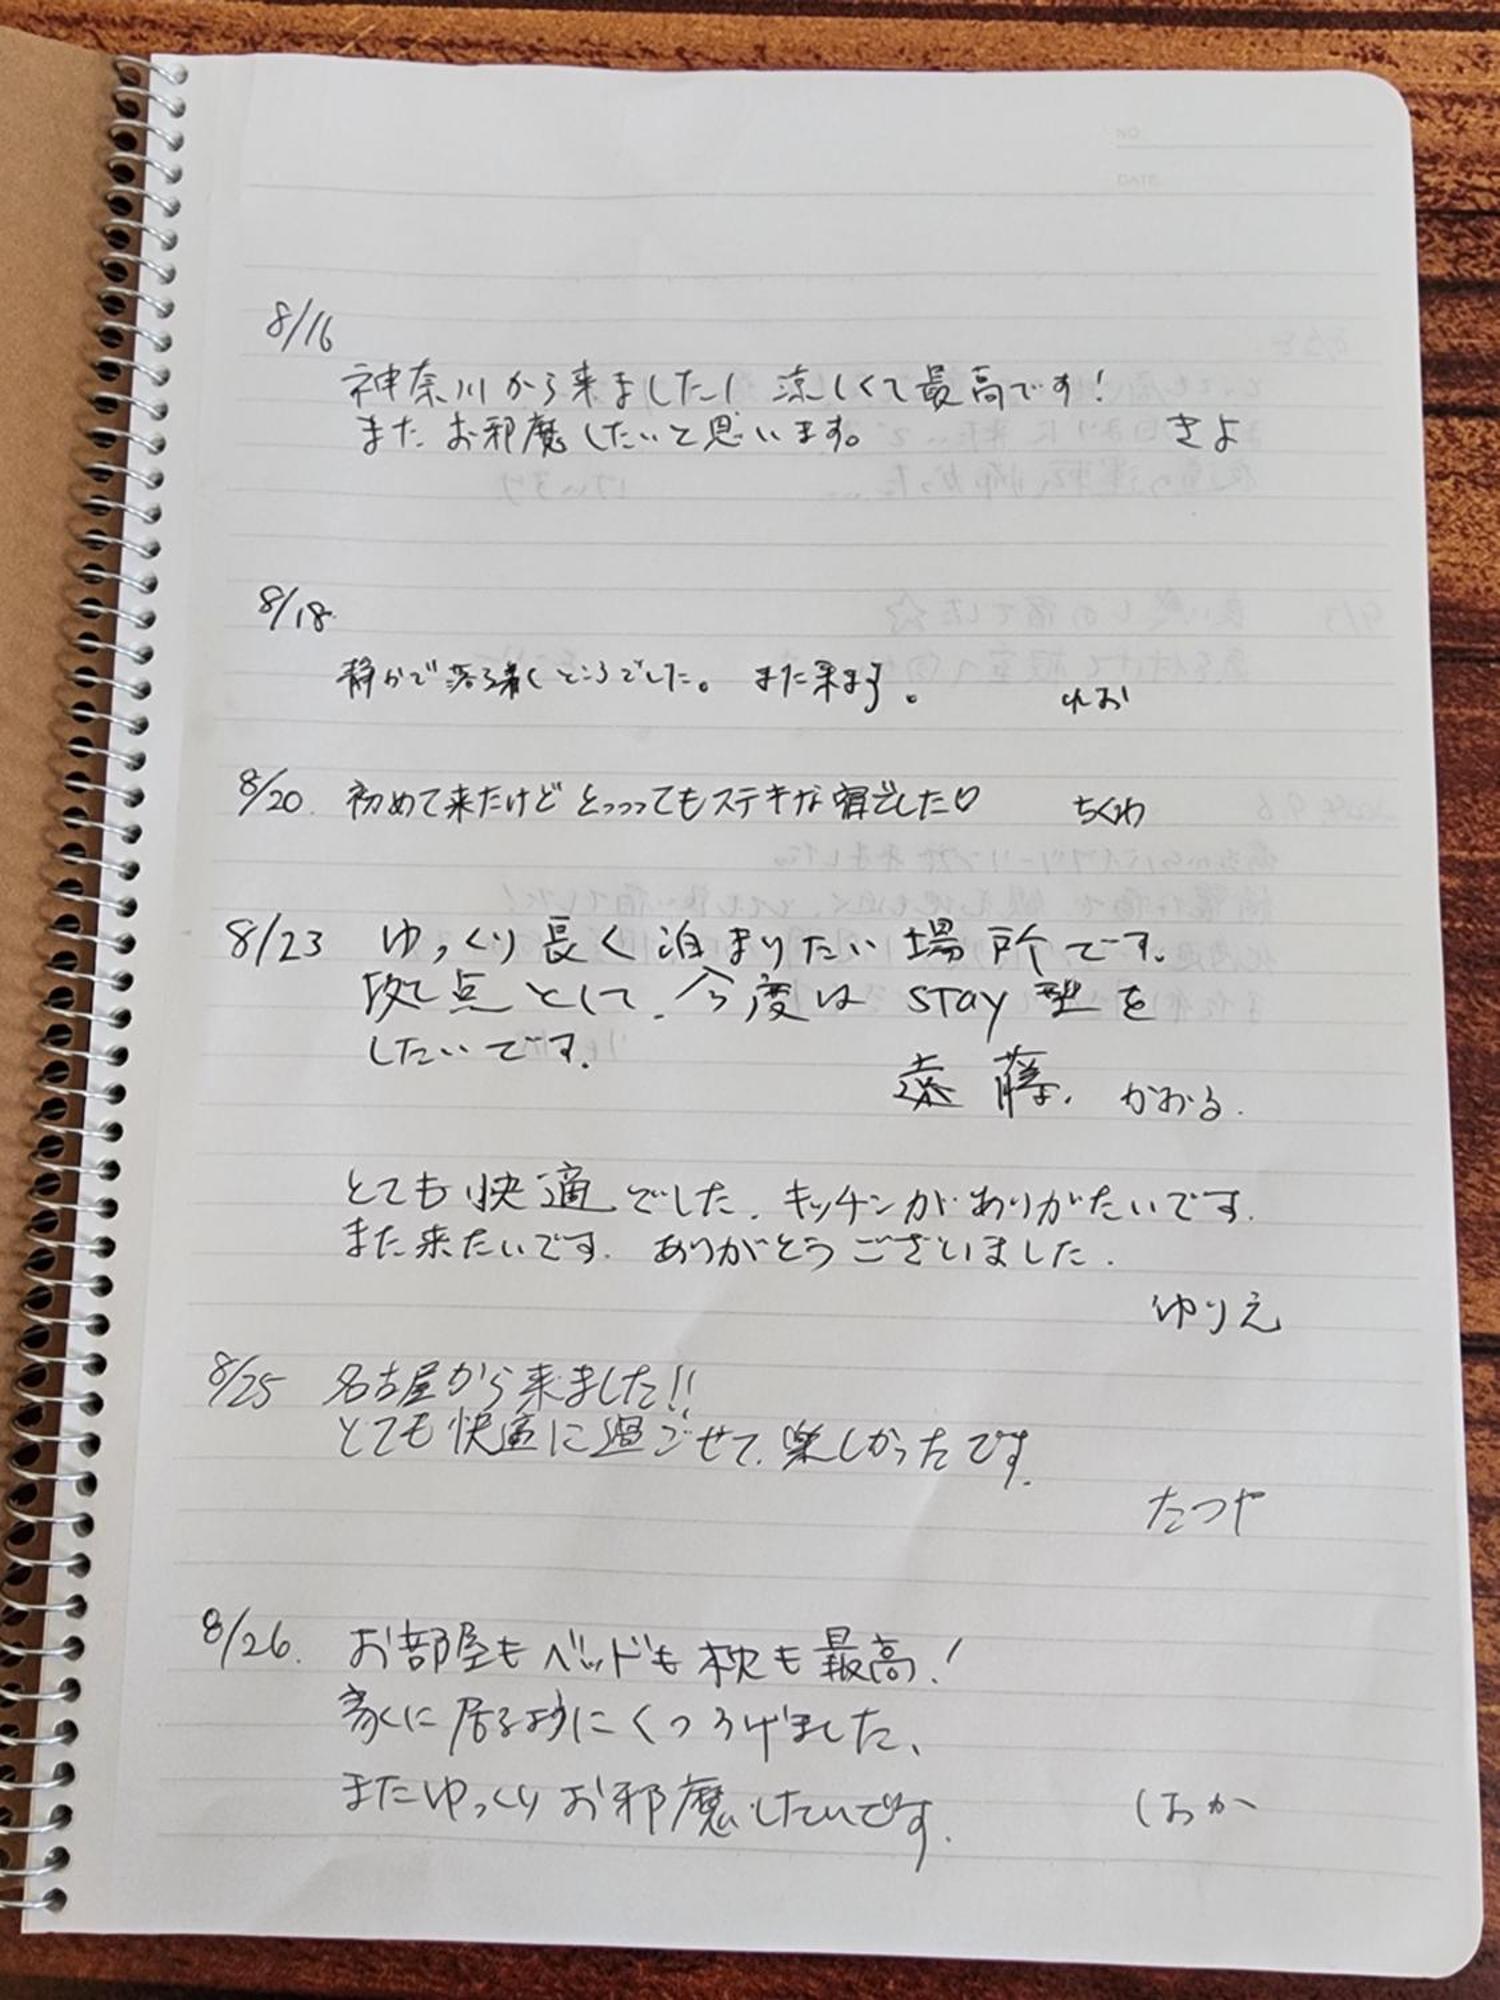 NO
DATE
8/16
神奈川から来ました! 涼しくて最高です!
またお邪魔したいと思います。 きよ
8/18
静かで落ち着くところでした。 また来ます。 れお
8/20. 初めて来たけど とっっってもステキな宿でした♡ ちくわ
8/23 ゆっくり長く泊まりたい場所です.
拠点として.今度は STAY 型を
したいです.
遠藤. かおる.
とても快適でした. キッチンがありがたいです.
また来たいです. ありがとうございました.
ゆりえ
8/25 名古屋から来ました!!
とても快適に過ごせて.楽しかったです.
たつや
8/26. お部屋もベッドも枕も最高!
家に居るようにくつろげました、
またゆっくりお邪魔したいです. しおか